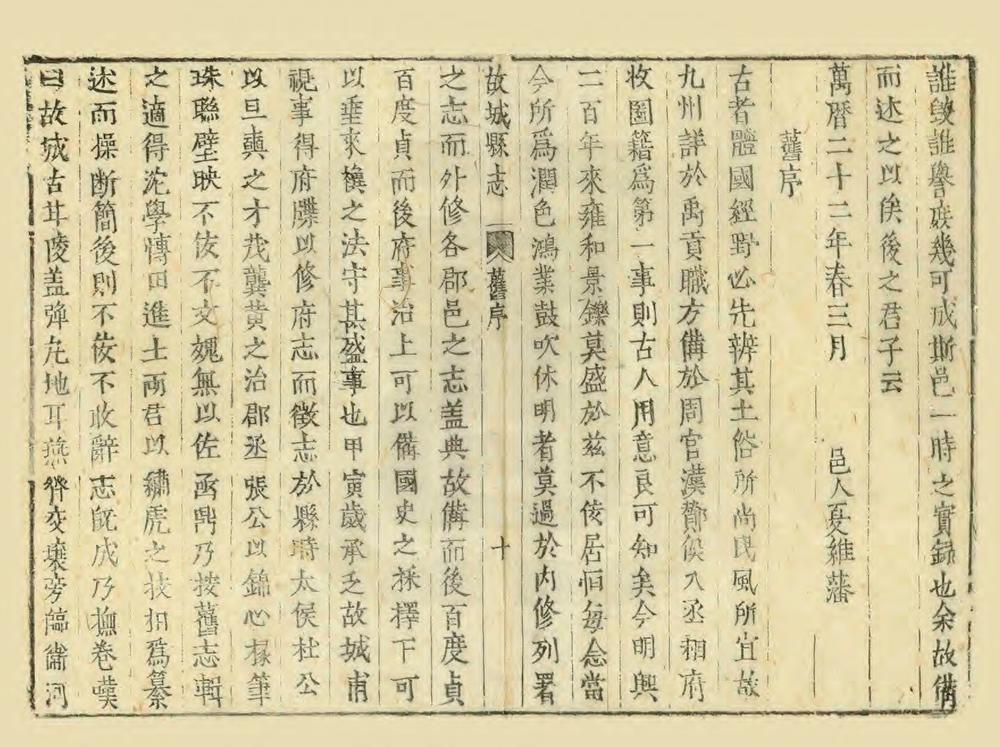 誰毀誰譽庶幾可成斯邑一時之實錄也余故備
而述之以俟後之君子云
萬曆二十二年春三月　邑人夏維藩
舊序
古者體國經野必先辨其土俗所尚民風所宜故
九州詳於禹貢職方備於周官漢酇侯入丞相府
收圖籍爲第一事則古人用意良可知矣今明興
二百年來雍和景鑠莫盛於兹不佞居恒每念當
今所爲潤色鴻業鼓吹休明者莫過於内修列署
故城縣志　舊序　十
之志而外修各郡邑之志盖典故備而後百度貞
百度貞而後府事治上可以備國史之採擇下可
以垂來禩之法守甚盛事也甲寅歲承乏故城甫
視事得府牒以修府志而徵志於縣時太侯杜公
以旦奭之才茂龔黄之治郡丞張公以錦心椽筆
珠聯壁映不佞不文媿無以佐函鼎乃按舊志輯
之適得沱學傳田進士兩君以繡虎之技相爲纂
述而操断簡後則不佞不敢辭志旣成乃撫卷嘆
曰故城古甘陵盖弹丸地耳燕齊交壤旁臨衛河